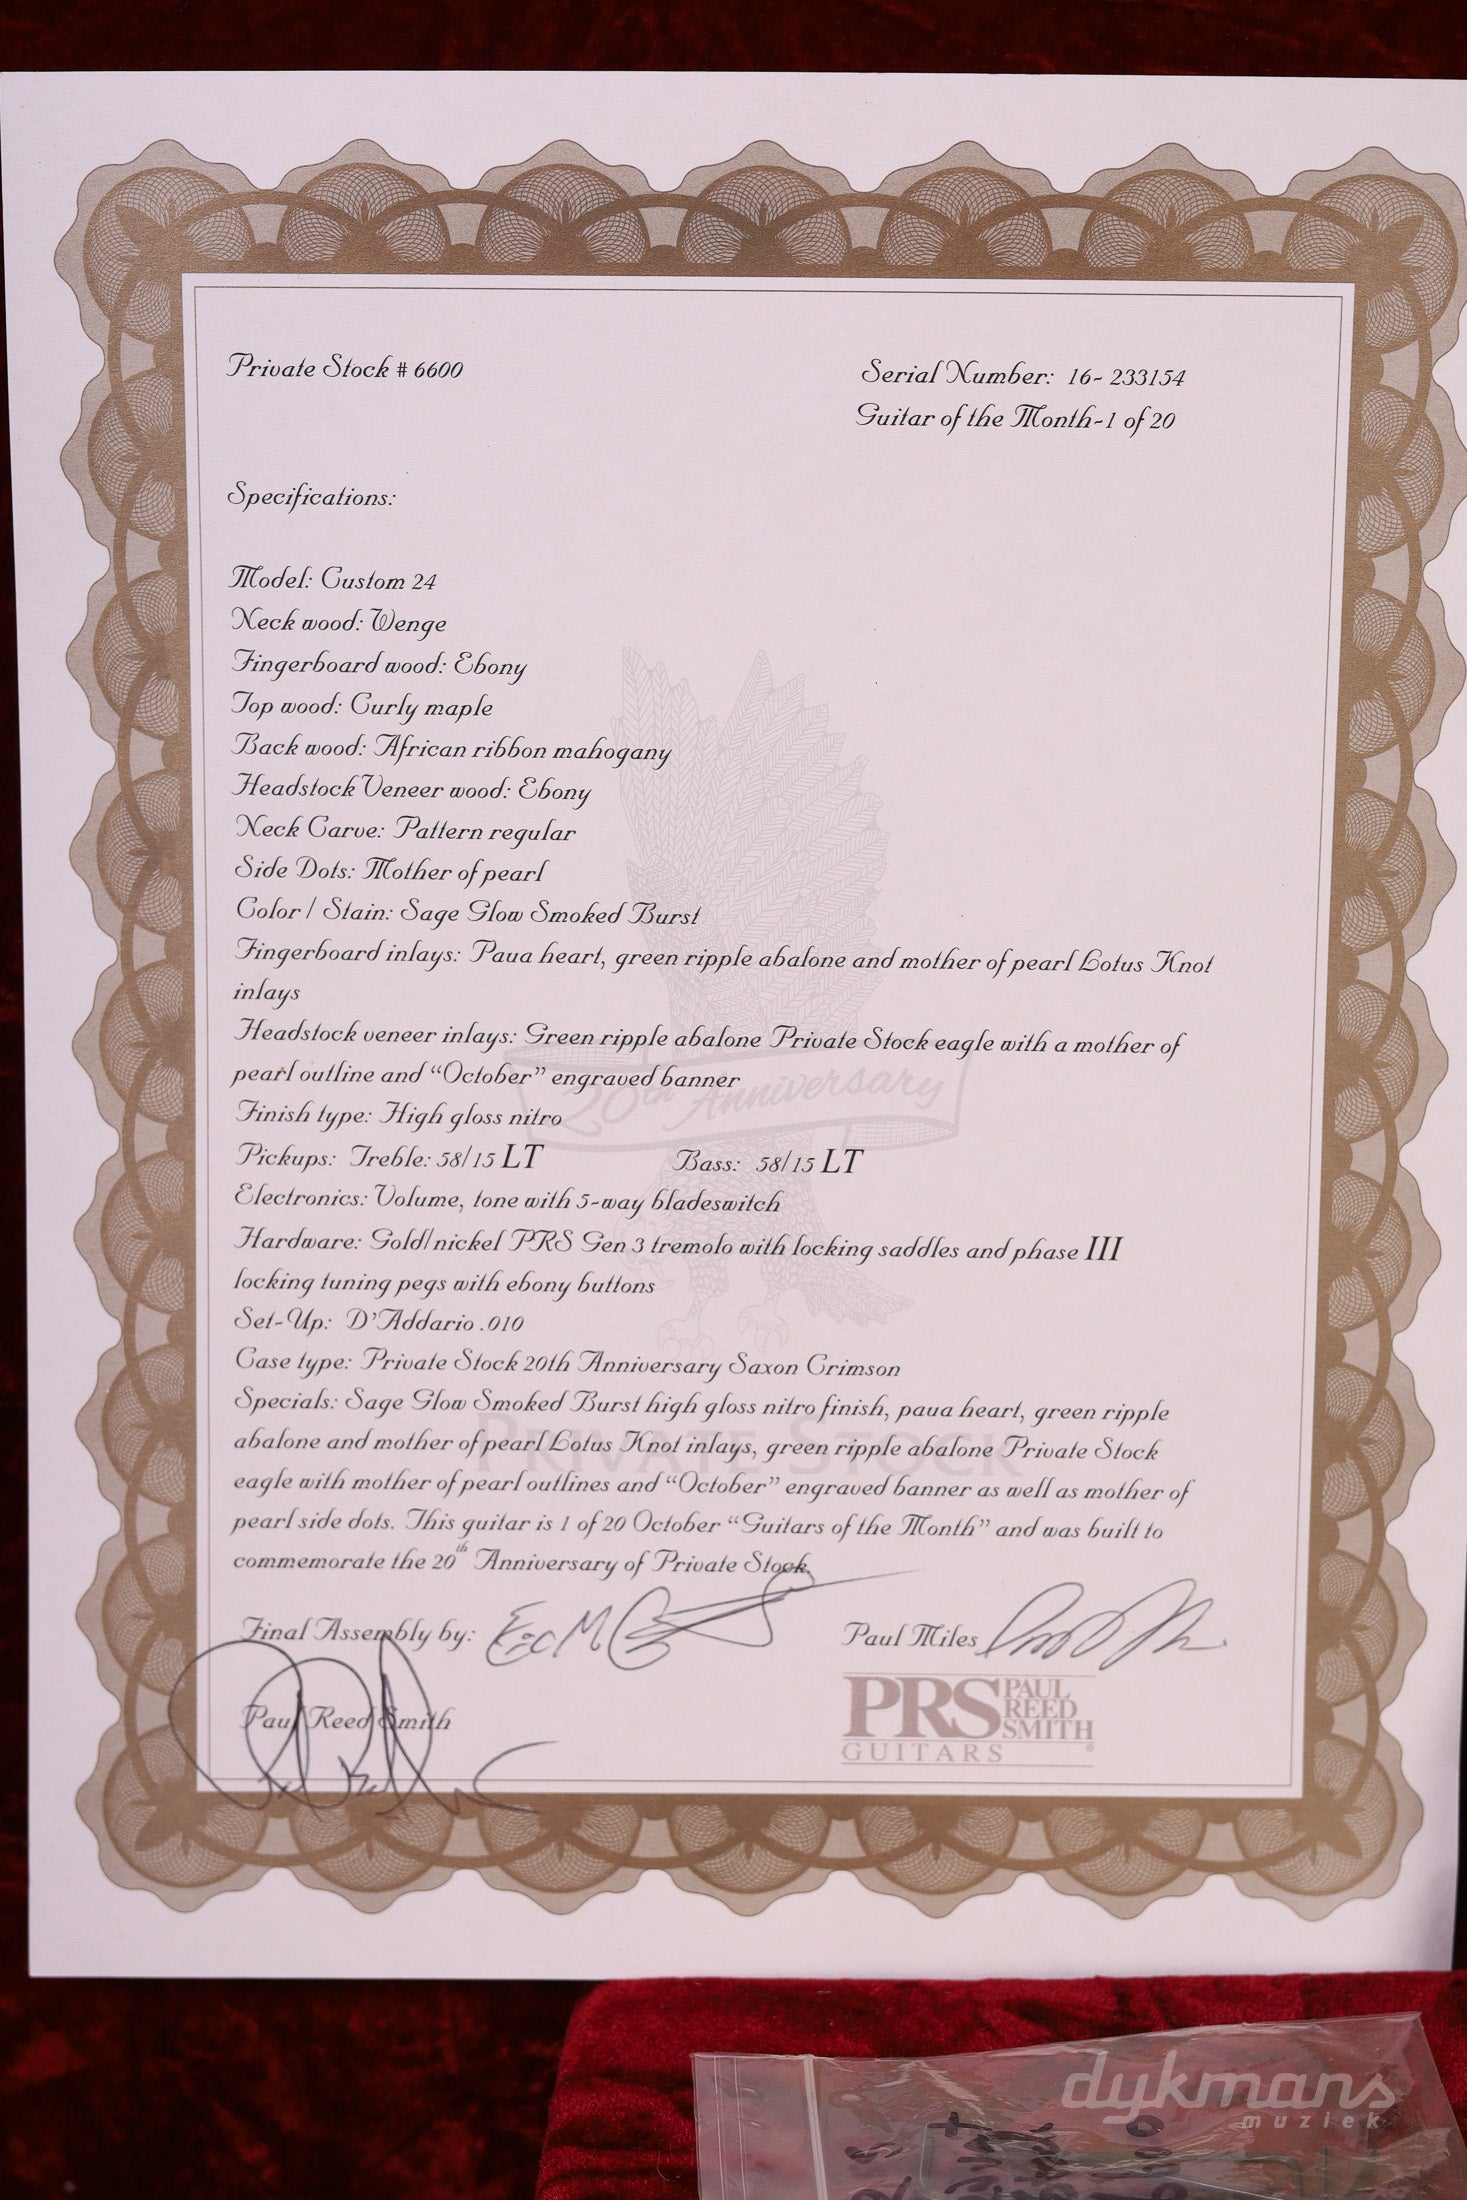 Private Stock # 6600
Serial Number: 16- 233154
Guitar of the Month-1 of 20
Specifications:
Model: Custom 24
Neck wood: Wenge
Fingerboard wood: Ebony
Top wood: Curly maple
Back wood: African ribbon mahogany
Headstock Veneer wood: Ebony
Neck Carve: Pattern regular
Side Dots: Mother of pearl
Color / Stain: Sage Glow Smoked Burst
Fingerboard inlays: Paua heart, green ripple abalone and mother of pearl Lotus Knot
inlays
Headstock veneer inlays: Green ripple abalone Private Stock eagle with a mother of
pearl outline and “October” engraved banner
20th Anniversary
Finish type: High gloss nitro
Pickups: Treble: 58/15 LT Bass: 58/15 LT
Electronics: Volume, tone with 5-way bladeswitch
Hardware: Gold/nickel PRS Gen 3 tremolo with locking saddles and phase III
locking tuning pegs with ebony buttons
Set-Up: D'Addario .010
Case type: Private Stock 20th Anniversary Saxon Crimson
Specials: Sage Glow Smoked Burst high gloss nitro finish, paua heart, green ripple
PRIVATE STOCK
abalone and mother of pearl Lotus Knot inlays, green ripple abalone Private Stock
eagle with mother of pearl outlines and “October” engraved banner as well as mother of
pearl side dots. This guitar is 1 of 20 October “Guitars of the Month” and was built to
commemorate the 20th Anniversary of Private Stock.
Final Assembly by:
Paul Miles
Paul Reed Smith
PRS PAUL
REED
SMITH
GUITARS
dykmans
muziek